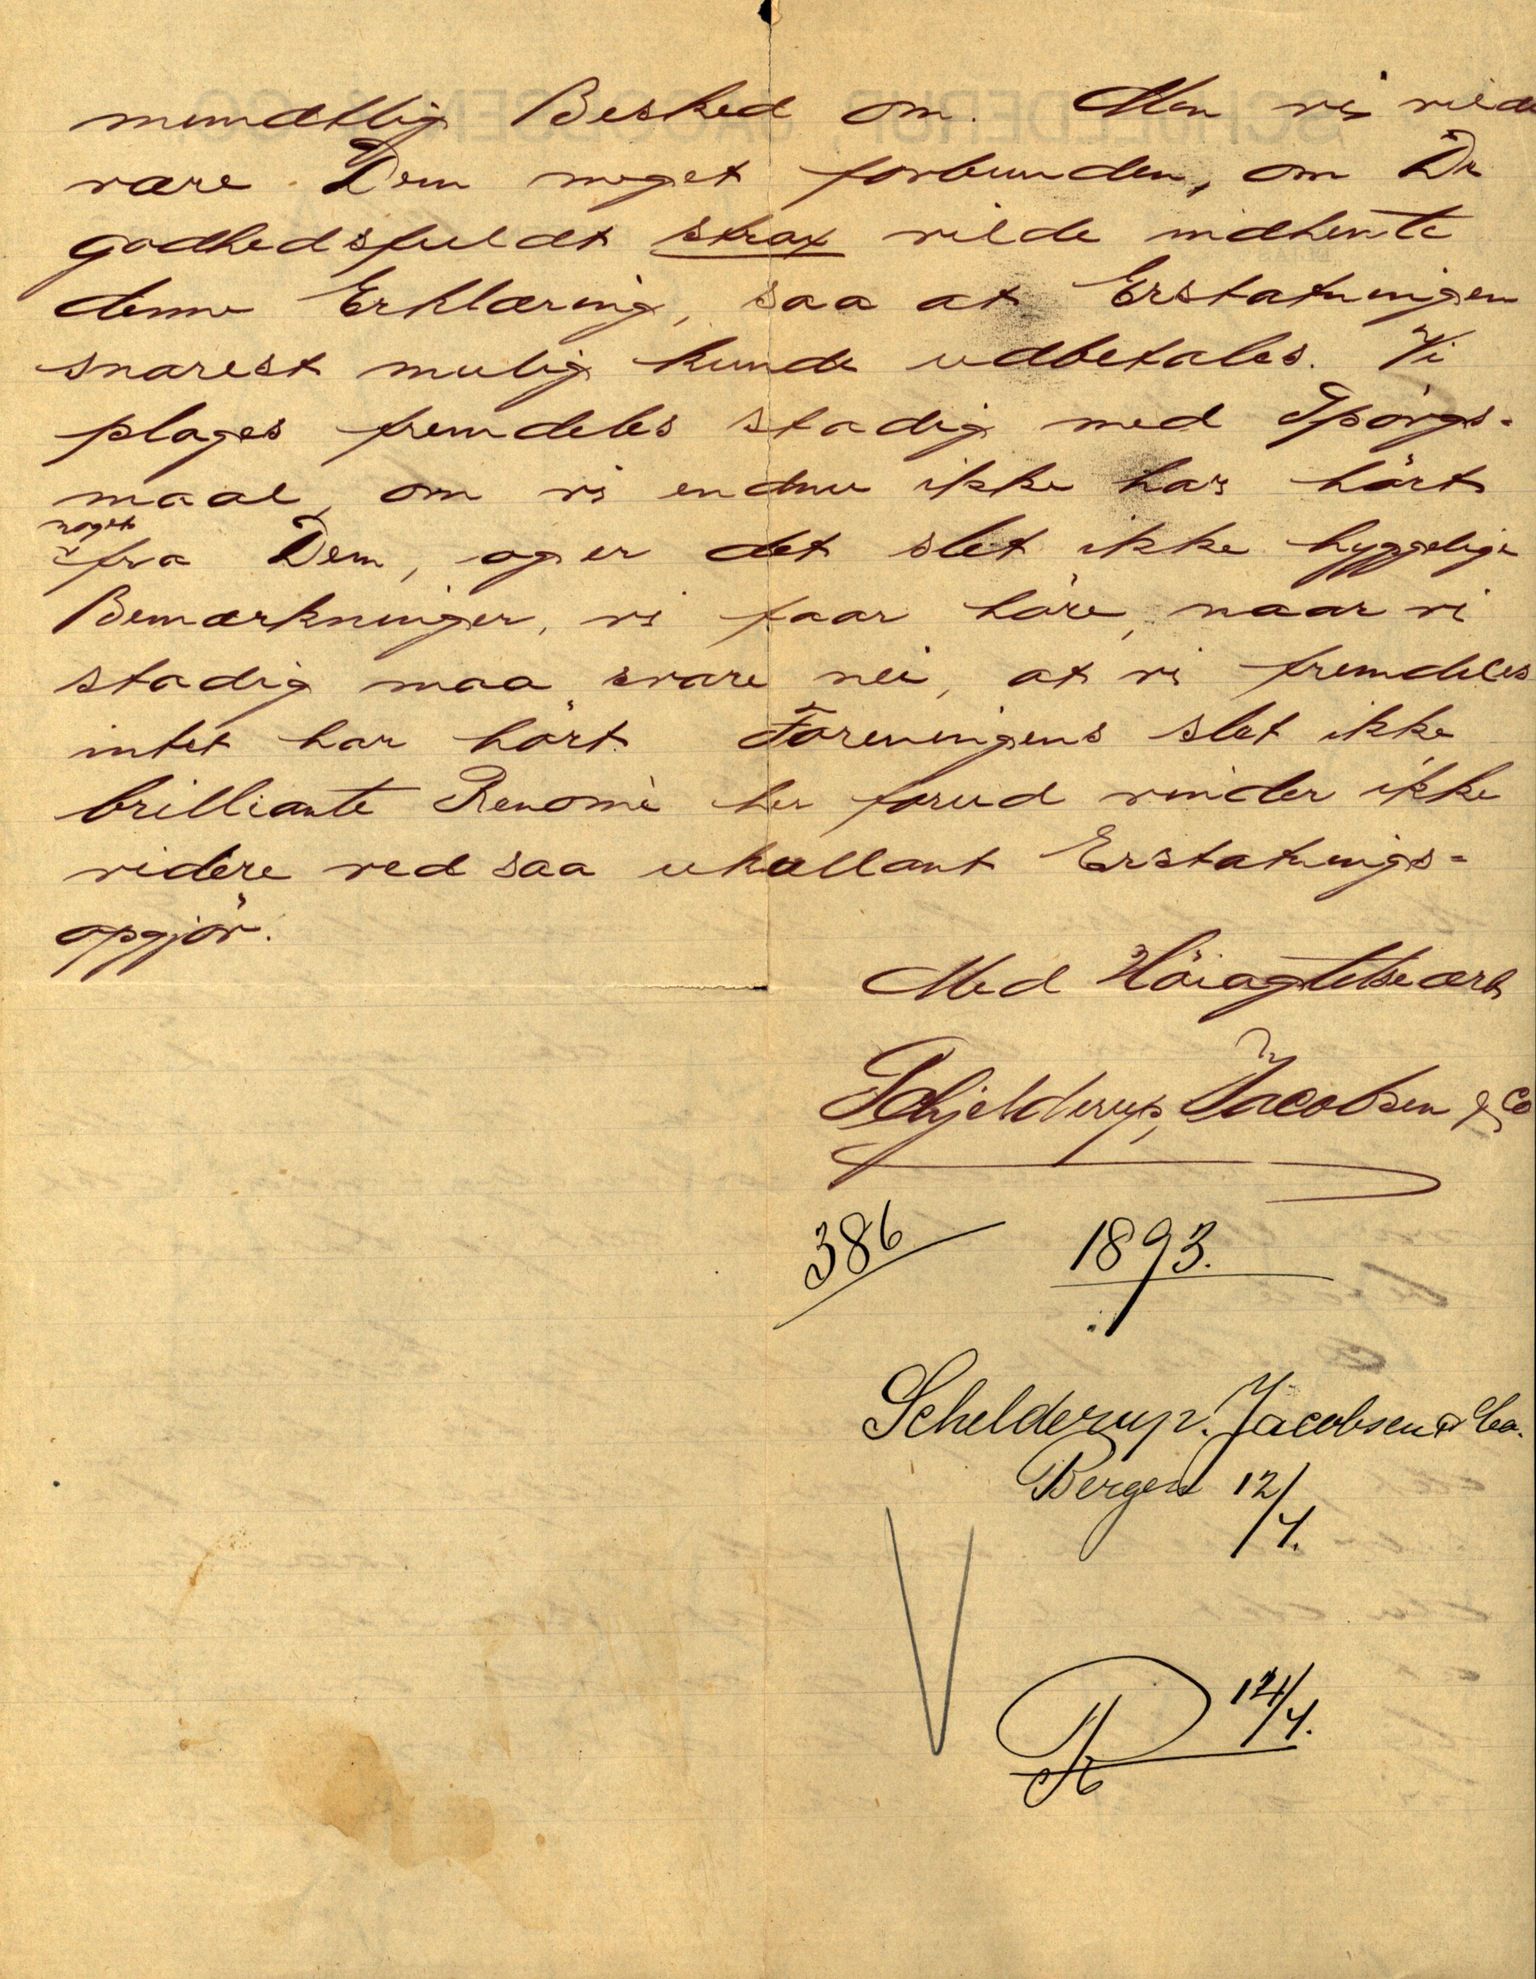 mundtlig Besked om. Men vi vilde
være Dem meget forbunden, om De
godhedsfuldt strax vilde indhente
denne Erklæring, saa at Erstatningen
snarest mulig kunde udbetales. Vi
plages fremdeles stadig med Spörgs-
maal, om vi endnu ikke har hört
noget
fra Dem, og er det slet ikke hyggelige
Bemærkninger, vi faar höre, naar vi
stadig maa svare nei, at vi fremdeles
intet har hört. Foreningens slet ikke
brilliante Renomè her forud vinder ikke
videre ved saa ukullant Erstatnings-
opgjör.
Med Höiagtelse ærb
Schjelderup, Jacobsen & Co
386 1893.
Schelderup. Jacobsen & Co.
Bergen 12/4.
12/4.